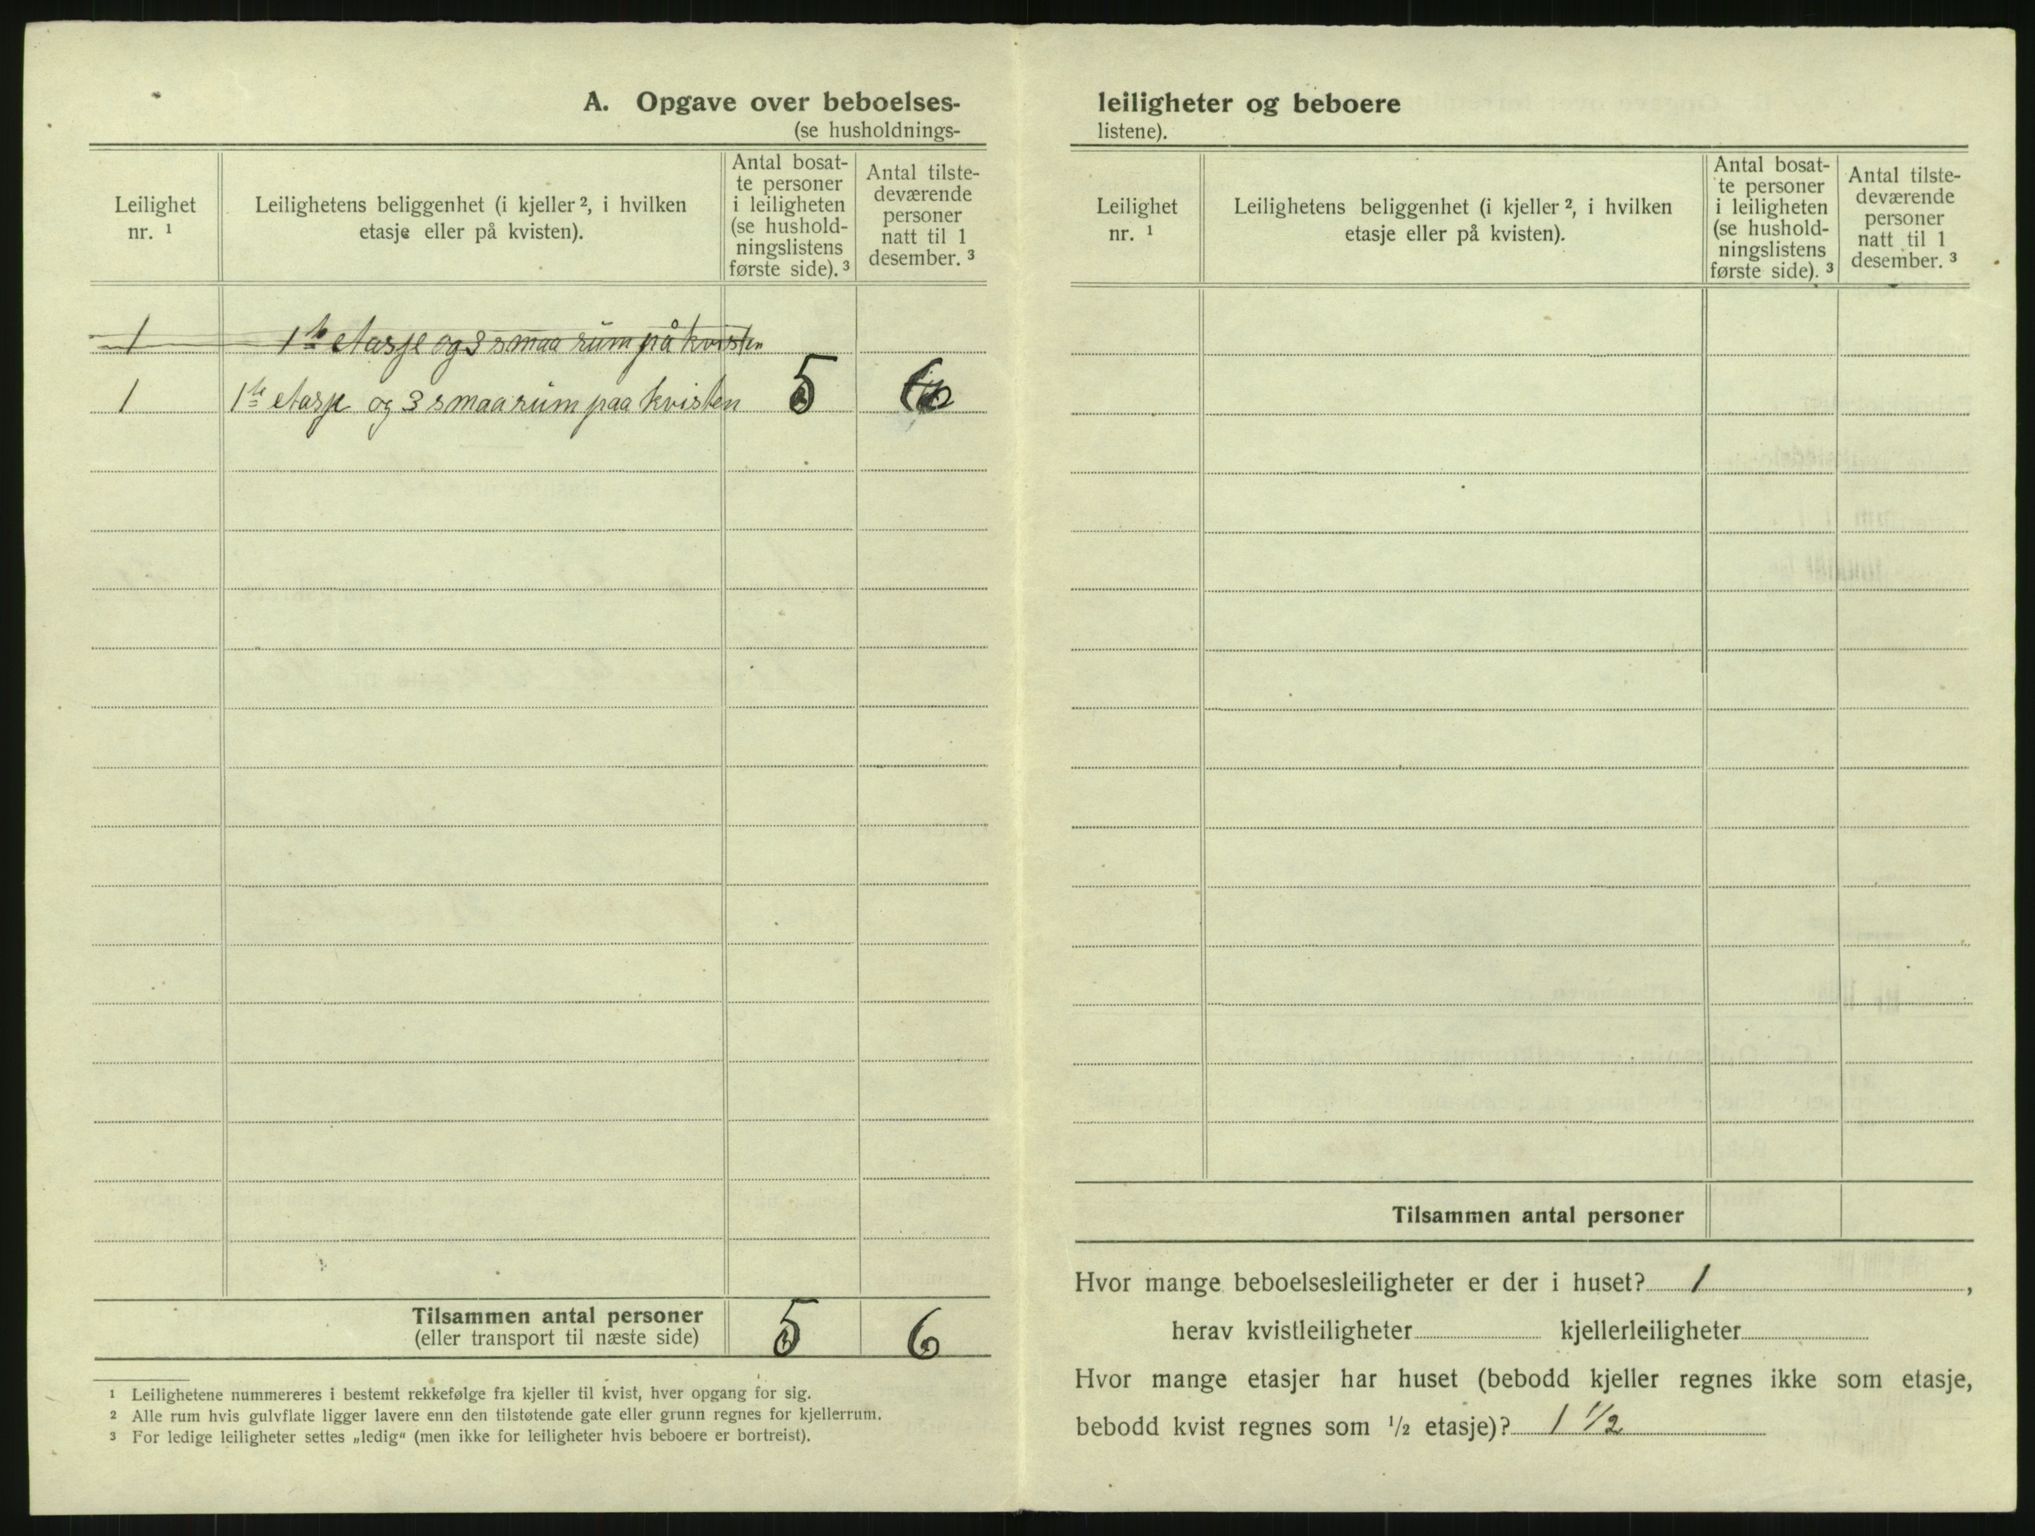 A. Opgave over beboelses-
(se husholdnings-
Leilighet nr. ¹
Leilighetens beliggenhet (i kjeller ², i hvilken etasje eller på kvisten).
Antal bosat-
te personer
i leiligheten
(se hushold-
ningslistens
første side). ³
Antal tilste-
deværende
personer
natt til 1
desember. ³
1 1ste etasje og 3 smaa rum på kvisten
1 1ste etasje og 3 smaa rum paa kvisten 5 6
Tilsammen antal personer 5 6
(eller transport til næste side)
¹ Leilighetene nummereres i bestemt rekkefølge fra kjeller til kvist, hver opgang for sig.
² Alle rum hvis gulvflate ligger lavere enn den tilstøtende gate eller grunn regnes for kjellerrum.
³ For ledige leiligheter settes „ledig“ (men ikke for leiligheter hvis beboere er bortreist).
leiligheter og beboere
listene).
Leilighet nr. ¹
Leilighetens beliggenhet (i kjeller ², i hvilken etasje eller på kvisten).
Antal bosat-
te personer
i leiligheten
(se hushold-
ningslistens
første side). ³
Antal tilste-
deværende
personer
natt til 1
desember. ³
Tilsammen antal personer
Hvor mange beboelsesleiligheter er der i huset? 1,
herav kvistleiligheter kjellerleiligheter
Hvor mange etasjer har huset (bebodd kjeller regnes ikke som etasje,
bebodd kvist regnes som ½ etasje)? 1 ½